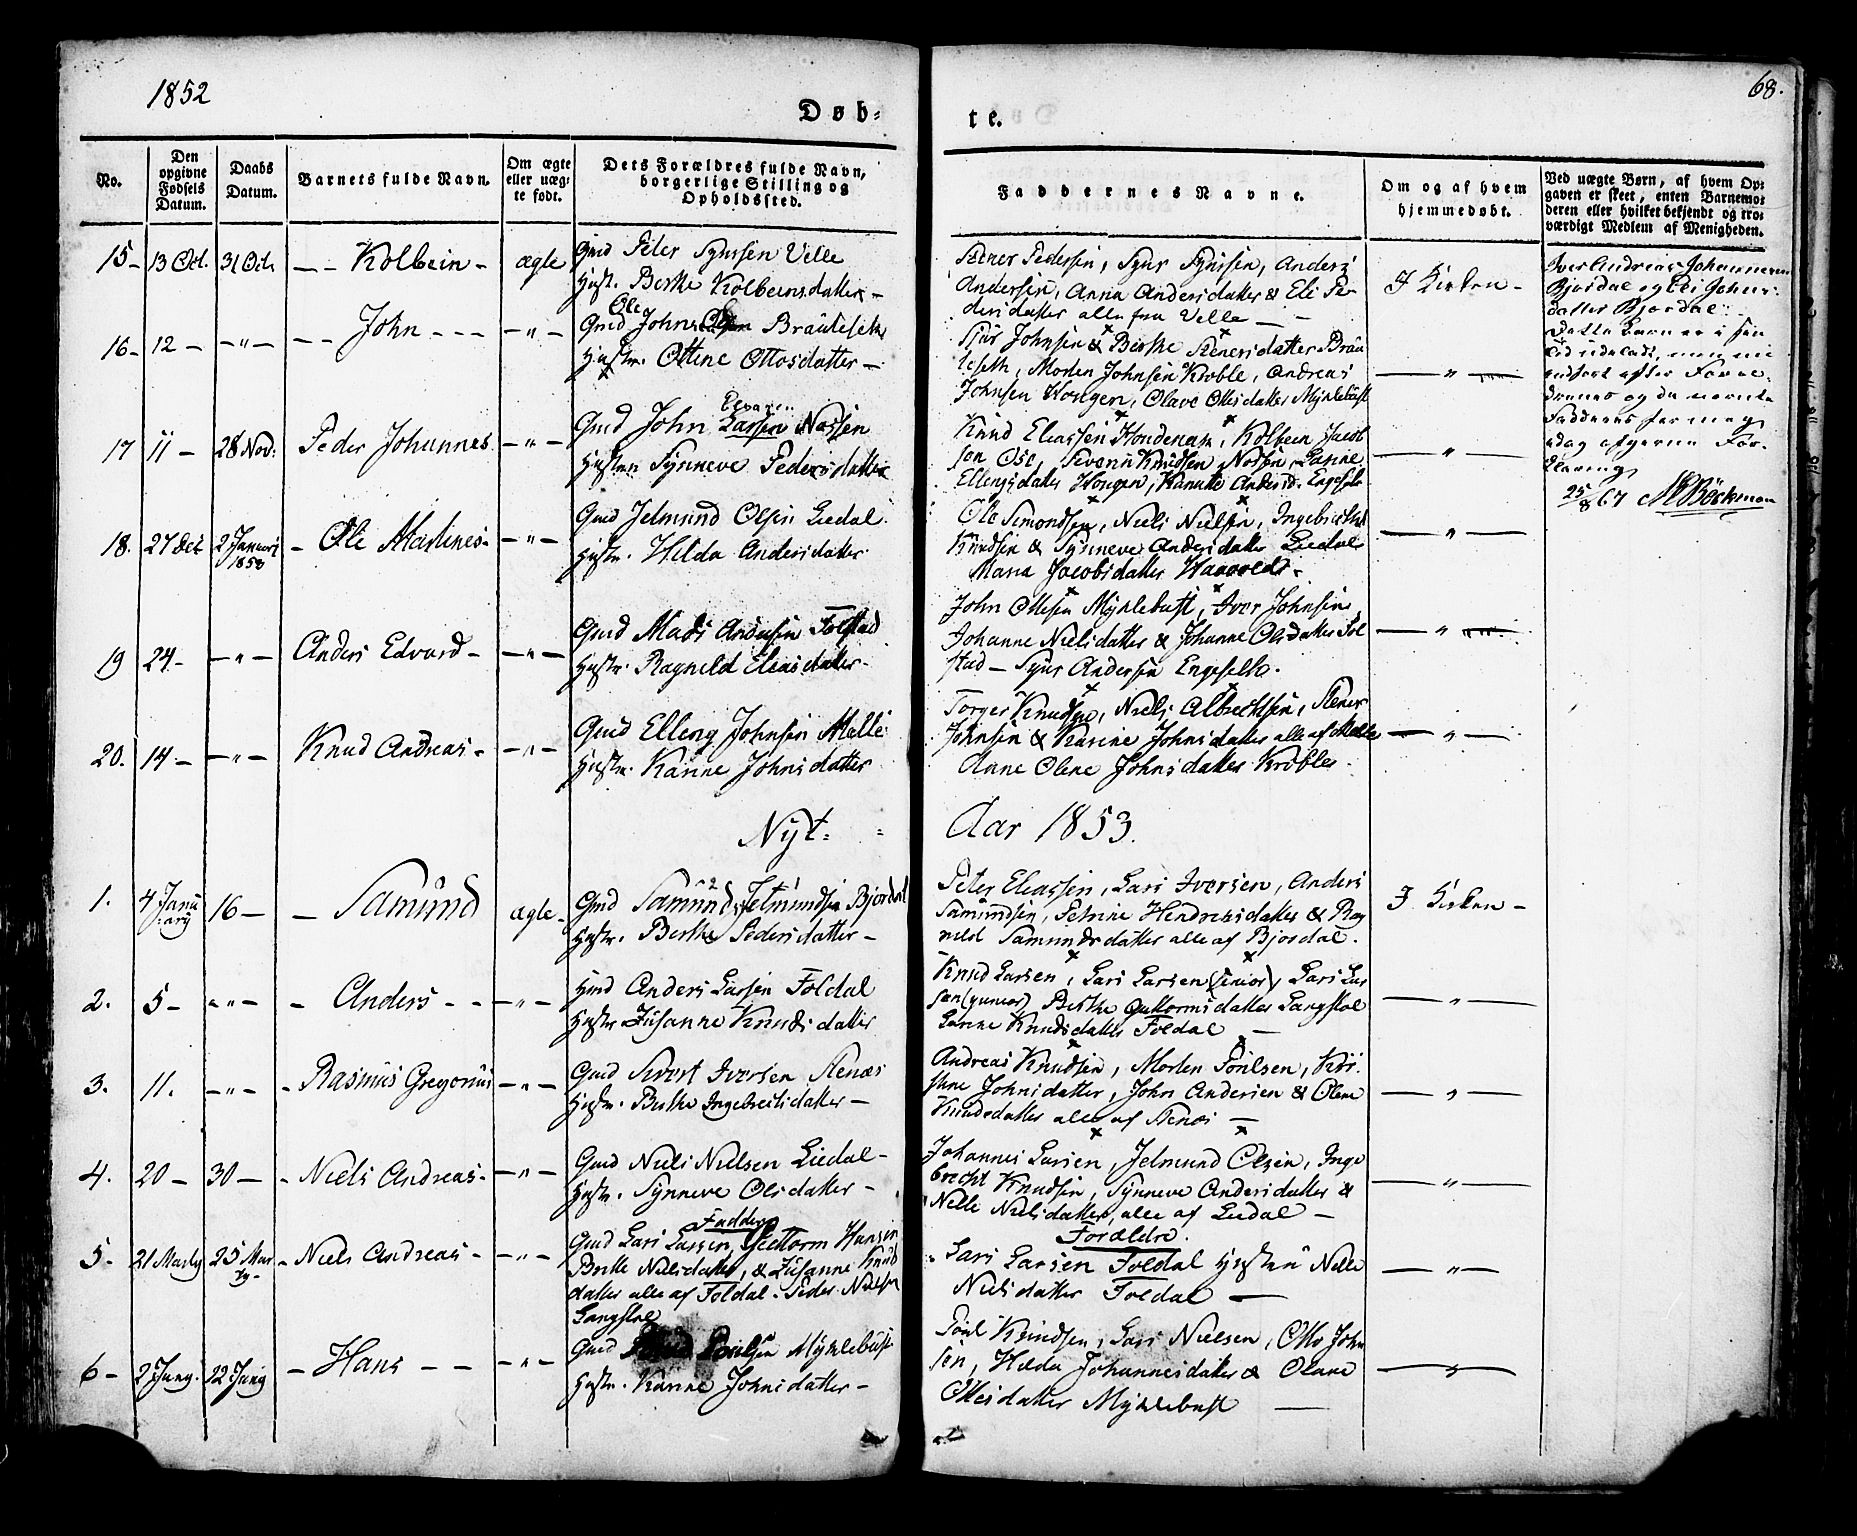 1852
68.
Døb-
te.
No.
Den
opgivne
Fødsels
Datum.
Daabs
Datum.
Barnets fulde Navn.
Om ægte
eller uæg-
te født.
Dets Forældres fulde Navn,
borgerlige Stilling og
Opholdssted.
Faddernes Navne.
Om og af hvem
hjemmedøbt.
Ved uægte Børn, af hvem Op-
gaven er skeet, enten Barnemo-
deren eller hvilket bekjendt og tro-
værdigt Medlem af Menigheden.
15 - 13 Oct. 31 Oct. - Kolbein - ægte
Gmd Peter Sjursen Velle
Hustr. Berthe Kolbeinsdatter -
Stener Pedersen, Sjur Sjursen, Anders
Andersen, Anna Andersdatter & Eli Pe-
dersdatter alle fra Velle -
I Kirken -
16 - 12 - - " - - John - - - - " -
Ole
Gmd John Bräuteseth
Hustr. Ottine Ottosdatter -
Sjur Johnsen & Berthe Stenersdatter Bräu
teseth, Morten Johnsen Krøble, Andreas
Johnsen Hongen, Olave Ottesdatter Myklebust
- " -
17 11 - 28 Nov. Peder Johannes - " -
Gmd John Larsen Nossen
Hustru Synneve Pedersdatter
Knud Eliassen Hondenas, Kolbein Jacob
sen Ose, Severin Knudsen Nossen, Hanne
Ellengsdatter Hongen, Hanne Andersd. Engeset
- " -
18. 27 Dec 2 Januari
1853
- Ole Martines - - " -
Gmd Jetmund Olsen Liedal
Hustr. Hilda Andersdatter
Ole Simondsen, Niels Nielsen, Ingebricht
Knudsen & Synneve Andersdatter Liedal
Maria Jacobsdatter
- " -
19 24 - - " - Anders Edvard - - " -
Gmd Mads Andersen Folstad
Hustr. Ragnild Eliasdatter -
John Ottesen Myklebust, Iver Johnsen
Johanne Nielsdatter & Johanne Olsdatter Fol
stad - Sjur Andersen Engeseth.
- " -
20. 14 - - " - Knud Andreas - - " -
Gmd Elleng Johnsen Melle
Hustr. Karine Johnsdatter
Torger Knudsen, Niels Albrechtsen, Stener
Johnsen & Karine Johnsdatter alle af Melle
Anne Olene Johnsdatter Krøble -
- " -
Iver Andreas Johannesen
Bjordal og Eli Johns-
datter Bjordal.
Dette Barn er i sin
Tid udeladt, men nu
indført efter Foræl-
drenes og de nævnte
Fadderes for mig
idag afgivne For-
klaring
25/8 67 Böckman
Nyt-
Aar 1853.
1. 4 Janu
ary
16 - - Samund ægte -
Gmd Samund Jetmundsen Bjordal
Hustr. Berthe Pedersdatter -
Peter Eliassen, Lars Iversen, Anders
Samundsen, Petrine Hendriksdatter & Rag
nild Samundsdatter alle af Bjordal.
I Kirken -
2. 5 - - " - - Anders - - - " -
Hmd Anders Larsen Foldal
Hustr. Susanne Knudsdatter
Knud Larsen, Lars Larsen (Senior), Lars Lar
sen (junior) Berthe Guttormsdatter Langstøl
Hanne Knudsdatter Foldal -
- " -
3. 11. - " - - Rasmus Gregorius - " -
Gmd Sivert Iversen Stenæs
Hustr. Berthe Ingebrecktsdatter -
Andreas Knudsen, Morten Poulsen, Kir-
stine Johnsdatter, John Andersen & Olene
Knudsdatter alle af Stenæs -
- " -
4. 20 - 30 - - Niels Andreas - - " -
Gmd Niels Nielsen Liedal -
Hustr. Synneve Olsdatter -
Johannes Larsen, Jetmund Olsen, Inge
brecht Knudsen, Synneve Andersdatter &
Nille Nielsdatter, alle af Liedal -
- " -
5. 21 Marty 25 Mar
ty -
- Niels Andreas - - " -
Faddere
Gmd Lars Larsen, Guttorm Hansen
Berthe Nielsdatter, & Susanne Knuds
datter alle af Foldal - Peder Nielsen
Langstøl
Forældre.
Lars Larsen Foldal Hustru Nille
Nielsdatter Foldal -
- " -
6 - 2 Juny. 12 Juny - Hans - - - " -
Gmd Poulsen Myklebust
Hustr. Karine Johnsdatter -
Poul Knudsen, Lars Nielsen, Otto John
sen, Hilda Johannesdatter & Olave
Ottesdatter Myklebust -
- " -